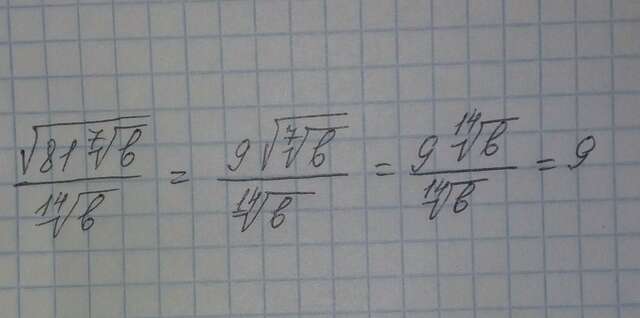 √(81 ⁷√b) / ¹⁴√b = 9 √(⁷√b) / ¹⁴√b = 9 ¹⁴√b / ¹⁴√b = 9